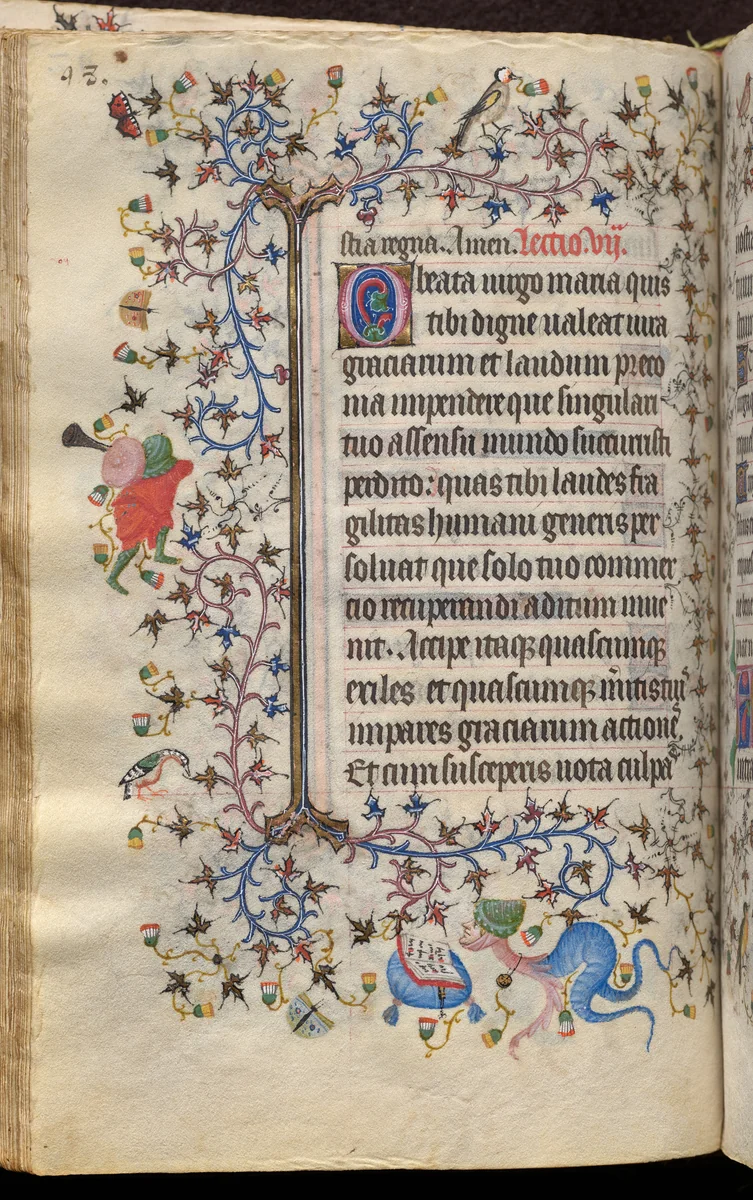 43.
stia regna. Amen. Lectio. vij.
O beata uirgo maria quis
tibi digne ualeat iura
graciarum et laudum preco
nia impendere que singulari
tuo assensu mundo succuristi
perdito: quas tibi laudes fra
gilitas humani generis per
soluat que solo tuo commer
cio recuperandi aditum inue
nit. Accipe itaqꝫ quascumqꝫ
exiles et quascumqꝫ
impares graciarum actionē.
Et cum susceperis uota culpa